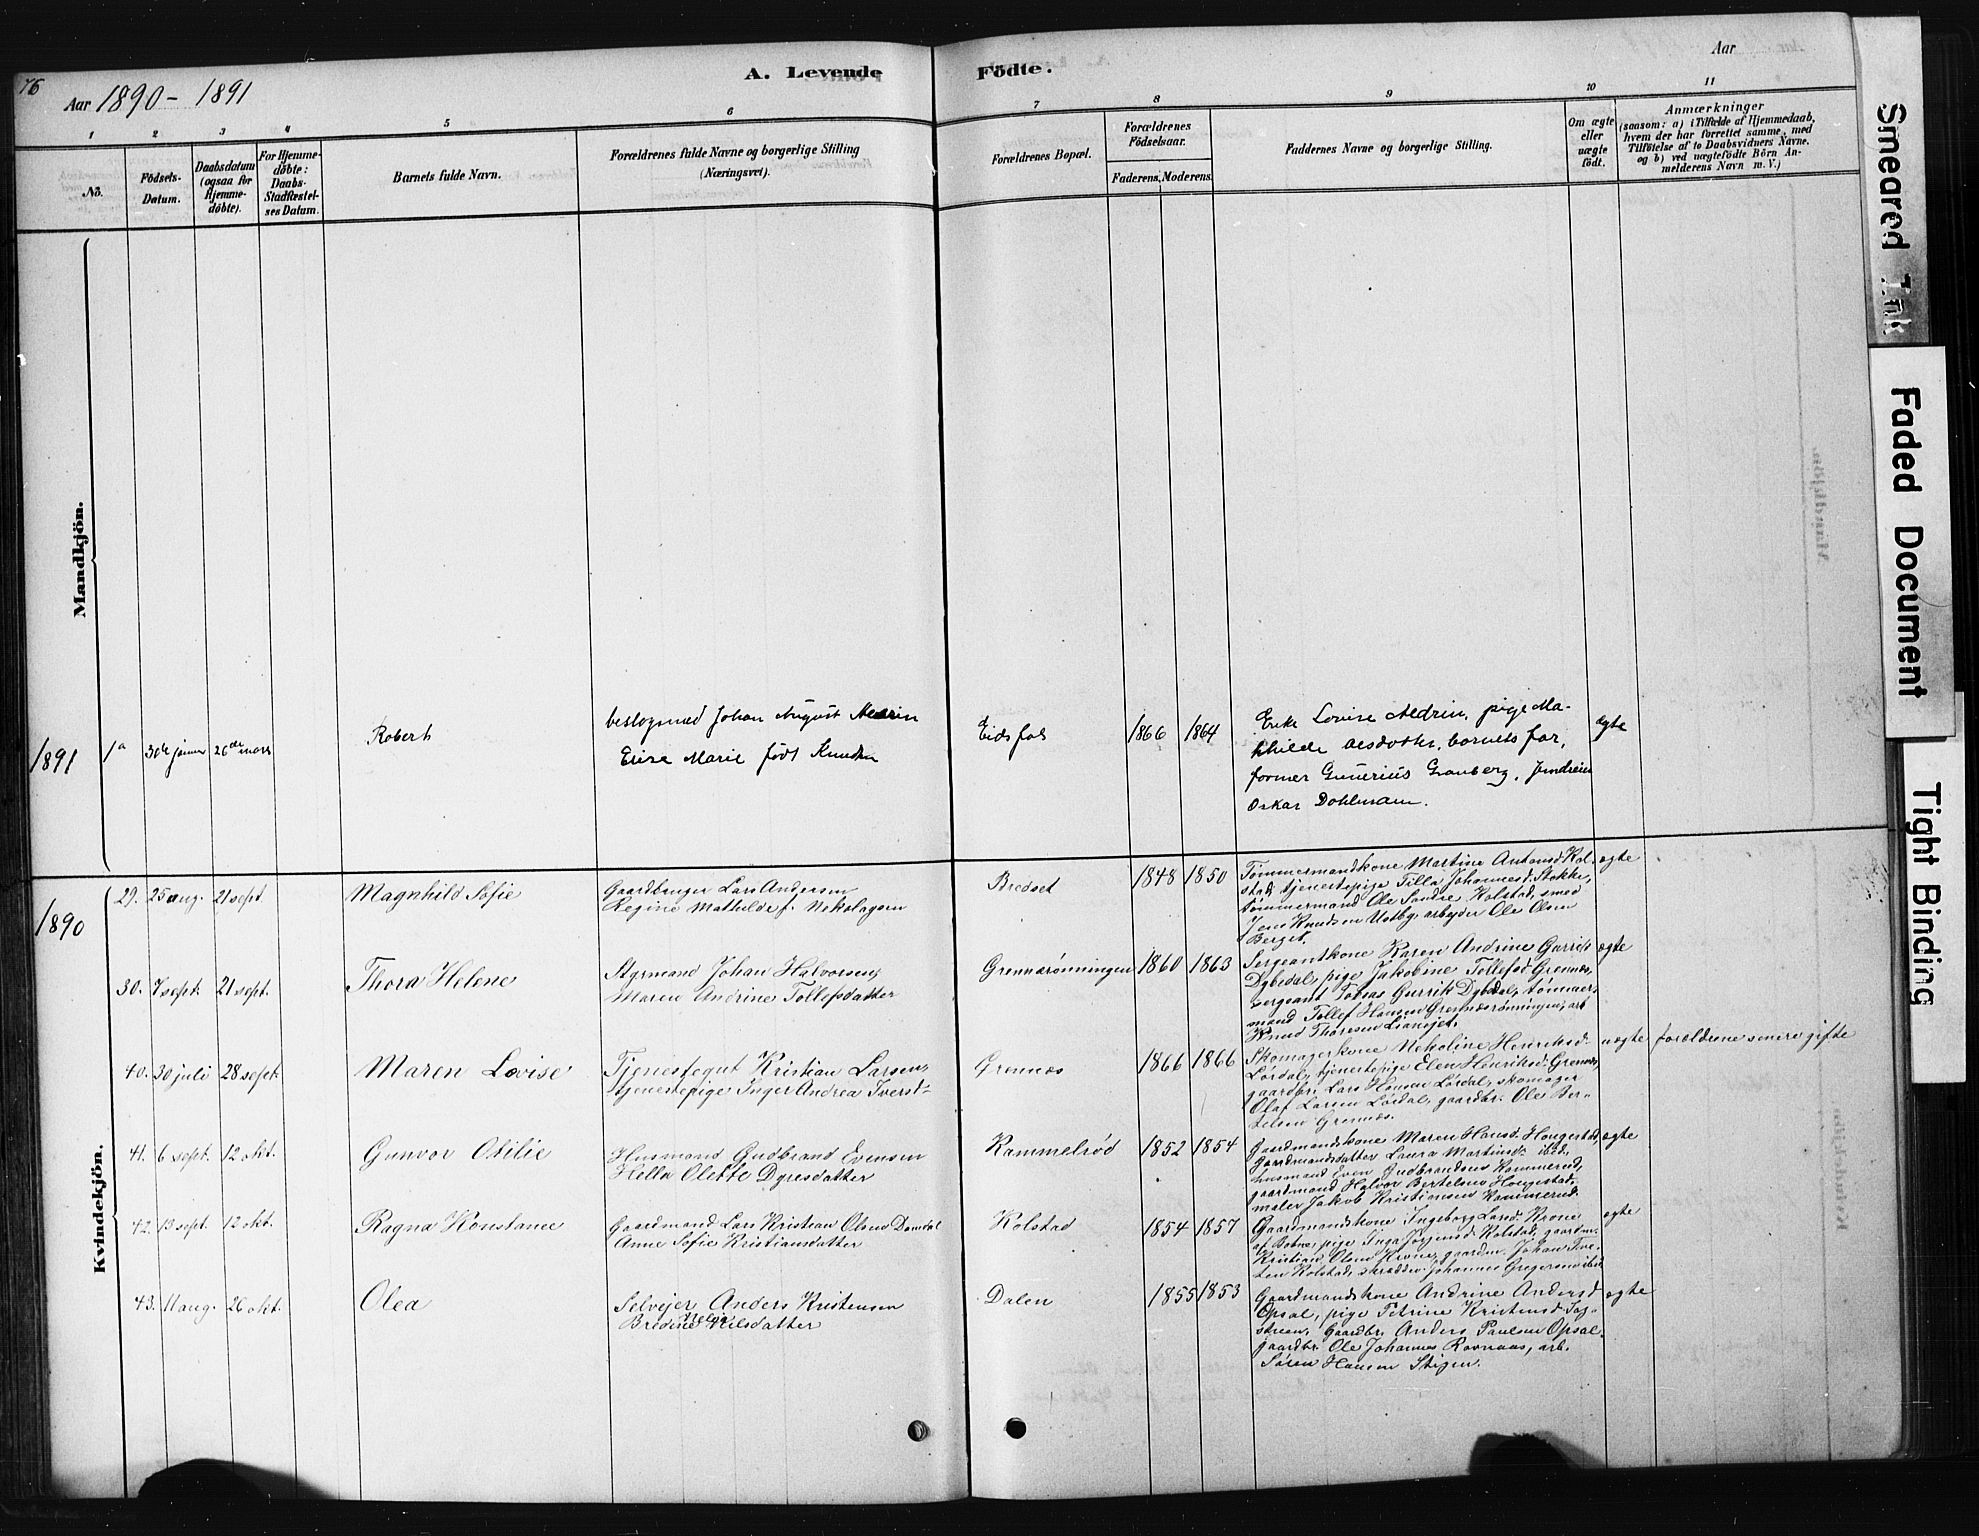 76
Aar 1890-1891
A. Levende Födte.
Aar
1 2 3 4 5 6 7 8 9 10 11
No.
Födsels-Datum.
Daabsdatum (ogsaa for Hjemme-döbte).
For Hjemme-döbte: Daabs-Stadfæstel-ses Datum.
Barnets fulde Navn.
Forældrenes fulde Navne og borgerlige Stilling
(Næringsvei).
Forældrenes Bopæl.
Forældrenes Födselsaar.
Faderens. Moderens.
Faddernes Navne og borgerlige Stilling.
Om ægte eller uægte födt.
Anmærkninger
(saasom: a) i Tilfælde af Hjemmedaab,
hvem der har forrettet samme, med
Tilföielse af to Daabsvidners Navne,
og b) ved uægtefödte Börn An-
melderens Navn m. V.)
Mandkjön.
1891 1a 30te januar 26de mars Robert
Johan August
Elise Marie født Knudsen
Eidsfos 1866 1864
Lovise Aldrin, pige Ma-
thilde barnets far,
former Gunerius Granberg,
Oskar Dohlmann.
ægte
Kvindekjön.
1890
29. 25 aug. 21 sept. Magnhild Sofie
Gaardbruger Lars Andersen
Regine Mathilde f. Nikolaysen
Bredset 1848 1850
Tømmermandkone Martine Antonsd. Kol-
stad, tjenestepige Tilla Johannesd. Stokke,
tømmermand Ole Kolstad, smed
Jens Knudsen arbejder Ole Olsen
Berget.
ægte
30. 7 sept. 21 sept. Thora Helene
Styrmand Johan Halvorsen,
Maren Andrine Tollefsdatter
Grennesrønningen 1860 1863
Sergeantkone Karen Andrine Gurrik
Dybedal, pige Jakobine Tollefsd. Grennes,
sergeant Tobias Gurrik Dybedal, tømmer-
mand Tollef Hansen Grennesrønningen, arb.
Knud Thoresen
ægte
40. 30 juli 28 sept. Maren Lovise
Tjenestegut Kristian Larsen,
tjenestepige Inger Andrea Iversd.
Grennes 1866 1866
Skomagerkone Nekoline Henriksd.
Lørdal, tjenestepige Elen Henriksd. Grennes,
gaardbr. Lars Hansen Lørdal, skomager
Olaf Larsen Lørdal, gaardbr. Ole Ber-
telsen Grennes.
uægte forældrene senere gifte
41. 6 sept. 12 okt. Gunvor Otilie
Husmand Gudbrand Evensen
Hella Olette Dyresdatter
Rammelrød 1852 1854
Gaardmandskone Maren Hansd. Hougestad,
Gaardmandsdatter Laura Martinsd. ibid.,
husmand Even Gudbrandsen Rammerud,
gaardmand Halvor Bertelsen Hougestad,
maler Jakob Kristiansen Rammerud.
ægte
42. 13 sept. 12 okt. Ragna Konstance
Gaardmand Lars Kristian Olsen
Anne Sofie Kristiansdatter
Kolstad 1854 1857
Gaardmandskone Ingeborg Larsd. Krone
af Botne, pige Inga Jørgensd. Kolstad, gaardm.
Kristian Olsen Krone, gaardm. Johan Ive-
sen Kolstad, skrædder Johannes Gregersen ibid.
ægte
43. 11 aug. 26 okt. Olea
Selvejer Anders Kristensen
Bredine Helene Nilsdatter
Dalen 1855 1853
Gaardmandskone Andrine Andersd.
Opsal, pige Petrine Kristensd.
gaardbr. Anders Paulsen Opsal,
gaardbr. Ole Johannes Ravnaas, arb.
Søren Hansen Stigen.
ægte
Smeared Ink
Faded Document
Tight Binding